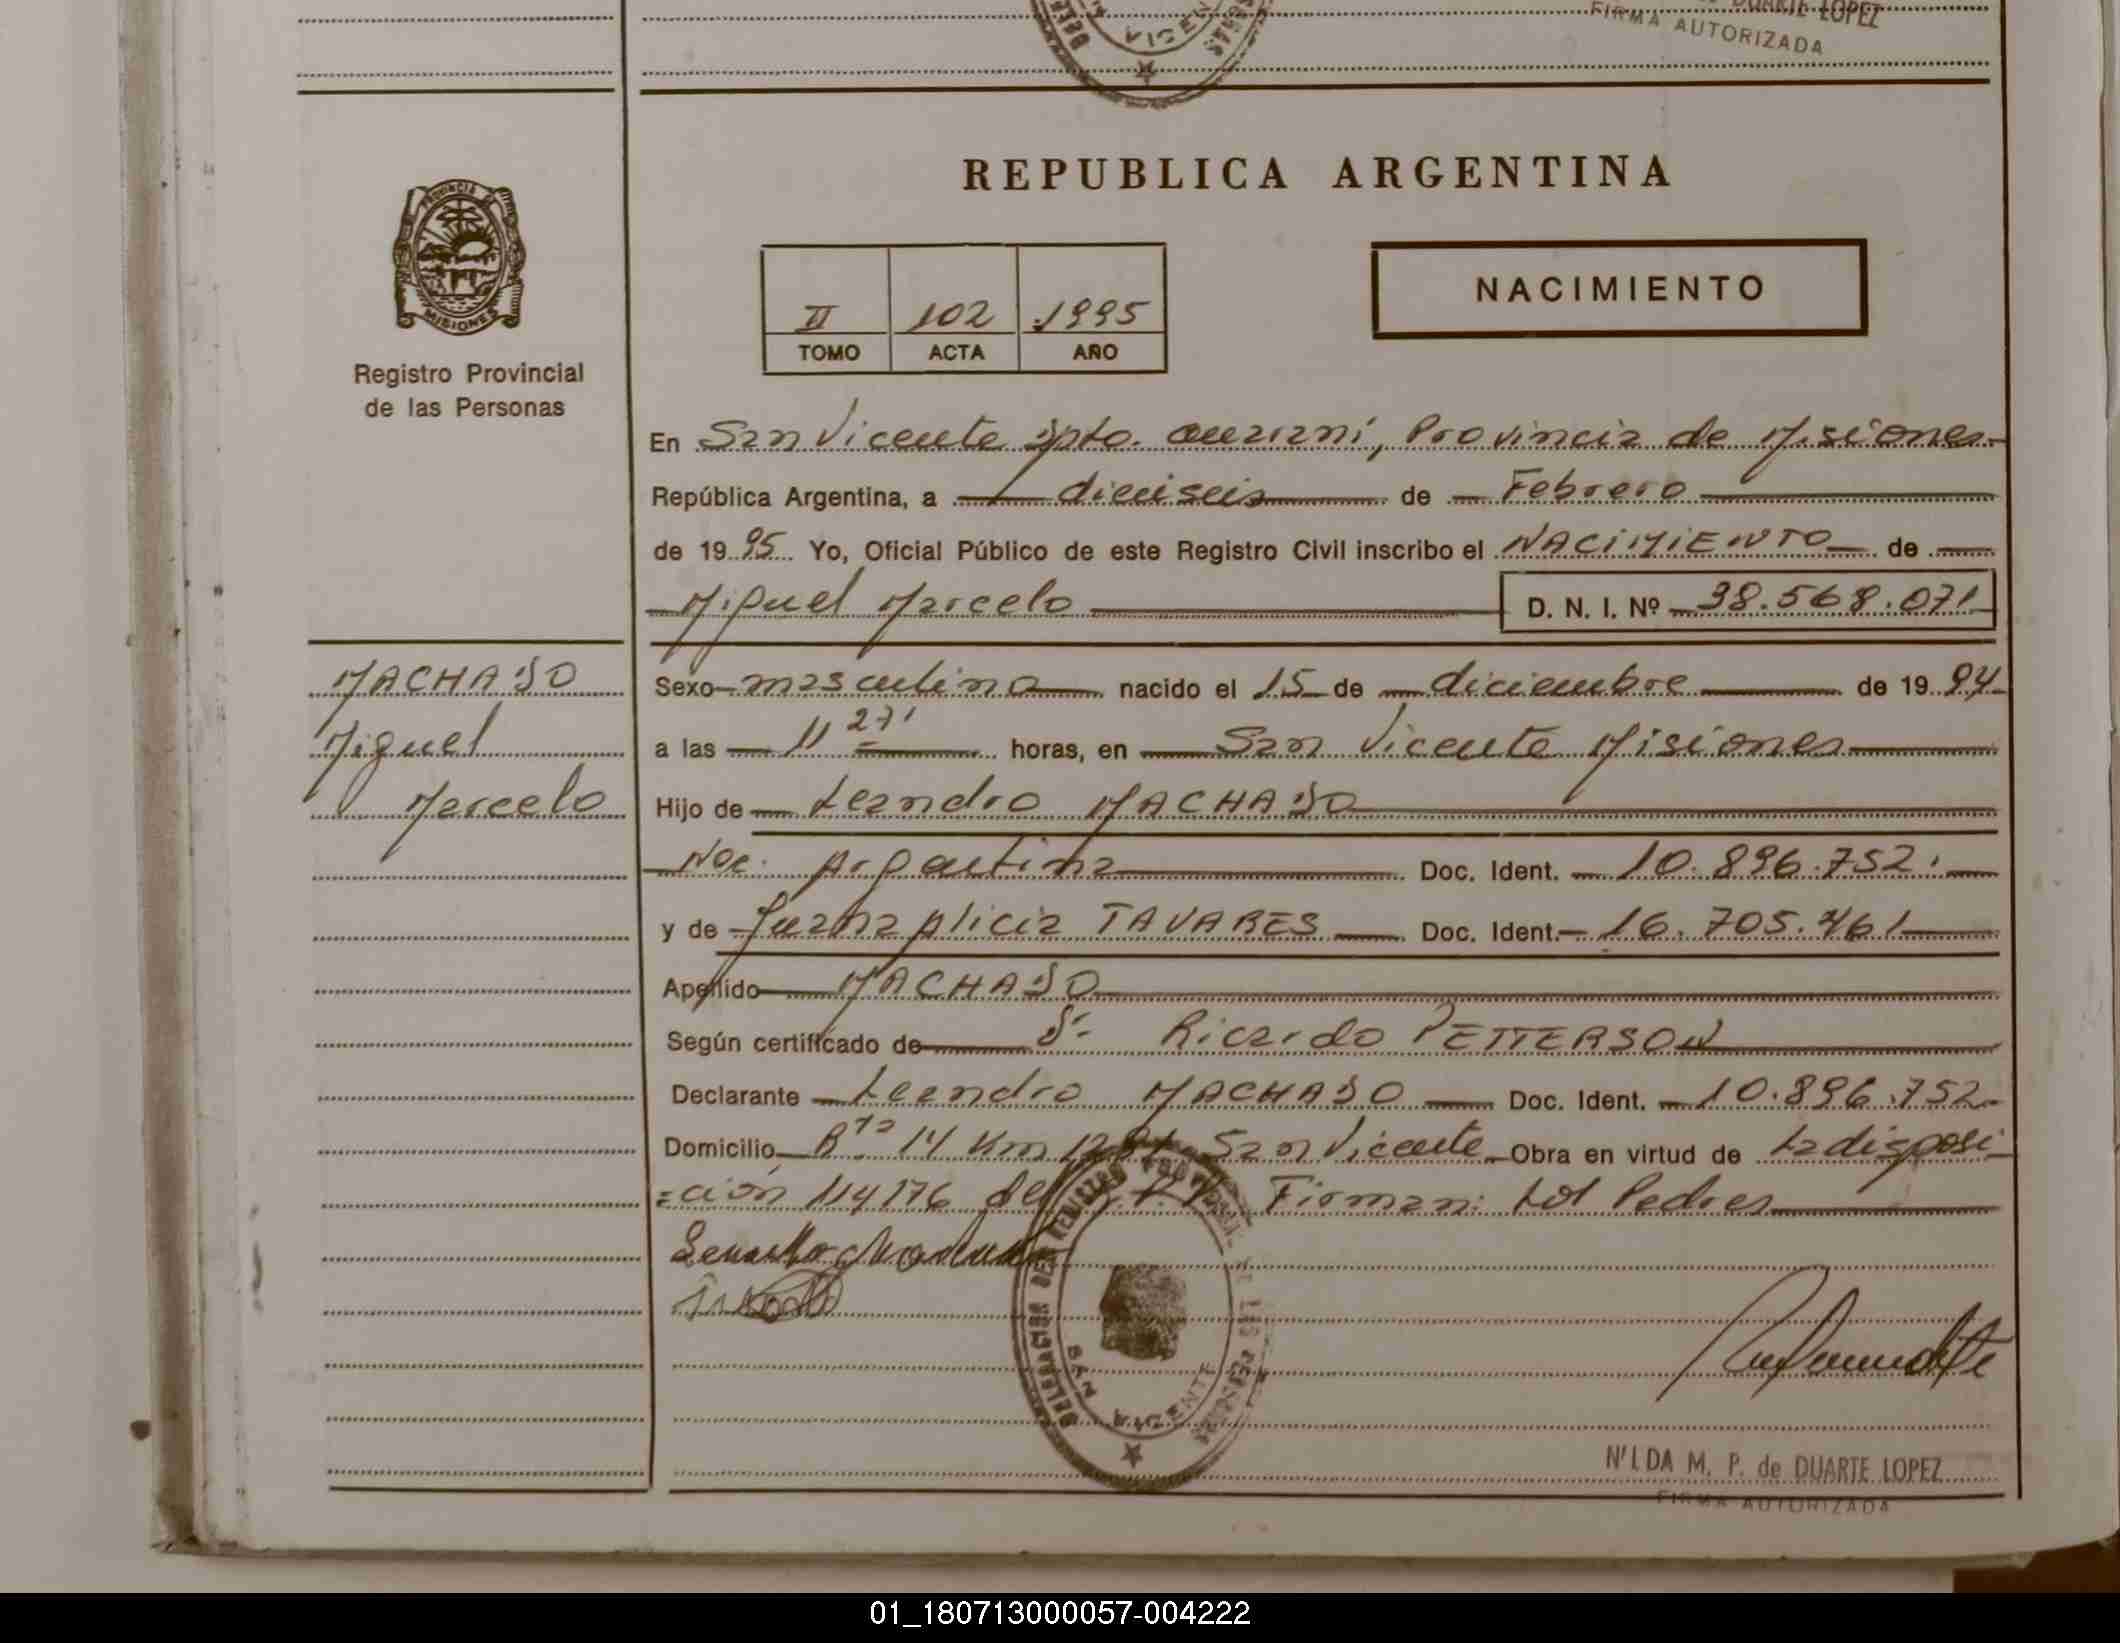 DUARTE LOPEZ
FIRMA AUTORIZADA
PROVINCIA DE
MISIONES
Registro Provincial
de las Personas
REPUBLICA ARGENTINA
II 102 1995
TOMO ACTA AÑO
NACIMIENTO
En San Vicente Dpto. Guaraní, Provincia de Misiones
República Argentina, a dieciseis de Febrero
de 1995 Yo, Oficial Público de este Registro Civil inscribo el NACIMIENTO de
Miguel Marcelo D. N. I. Nº 38.568.071
MACHADO
Miguel
Marcelo
Sexo masculino nacido el 15 de diciembre de 1994
a las 11 27' horas, en San Vicente Misiones
Hijo de Leandro MACHADO
Nac. Argentina Doc. Ident. 10.896.752.
y de Juana Alicia TAVARES Doc. Ident. 16.705.461
Apellido MACHADO
Según certificado de Dr. Ricardo PETTERSON
Declarante Leandro MACHADO Doc. Ident. 10.896.752
Domicilio Rta 14 Km 1281 San Vicente Obra en virtud de La disposi
=ción 114/76 del R.P.P. Firman: Los Padres
DELEGACION DEL REGISTRO PROVINCIAL DE LAS PERSONAS
SAN VICENTE
NILDA M. P. de DUARTE LOPEZ
FIRMA AUTORIZADA
01_180713000057-004222